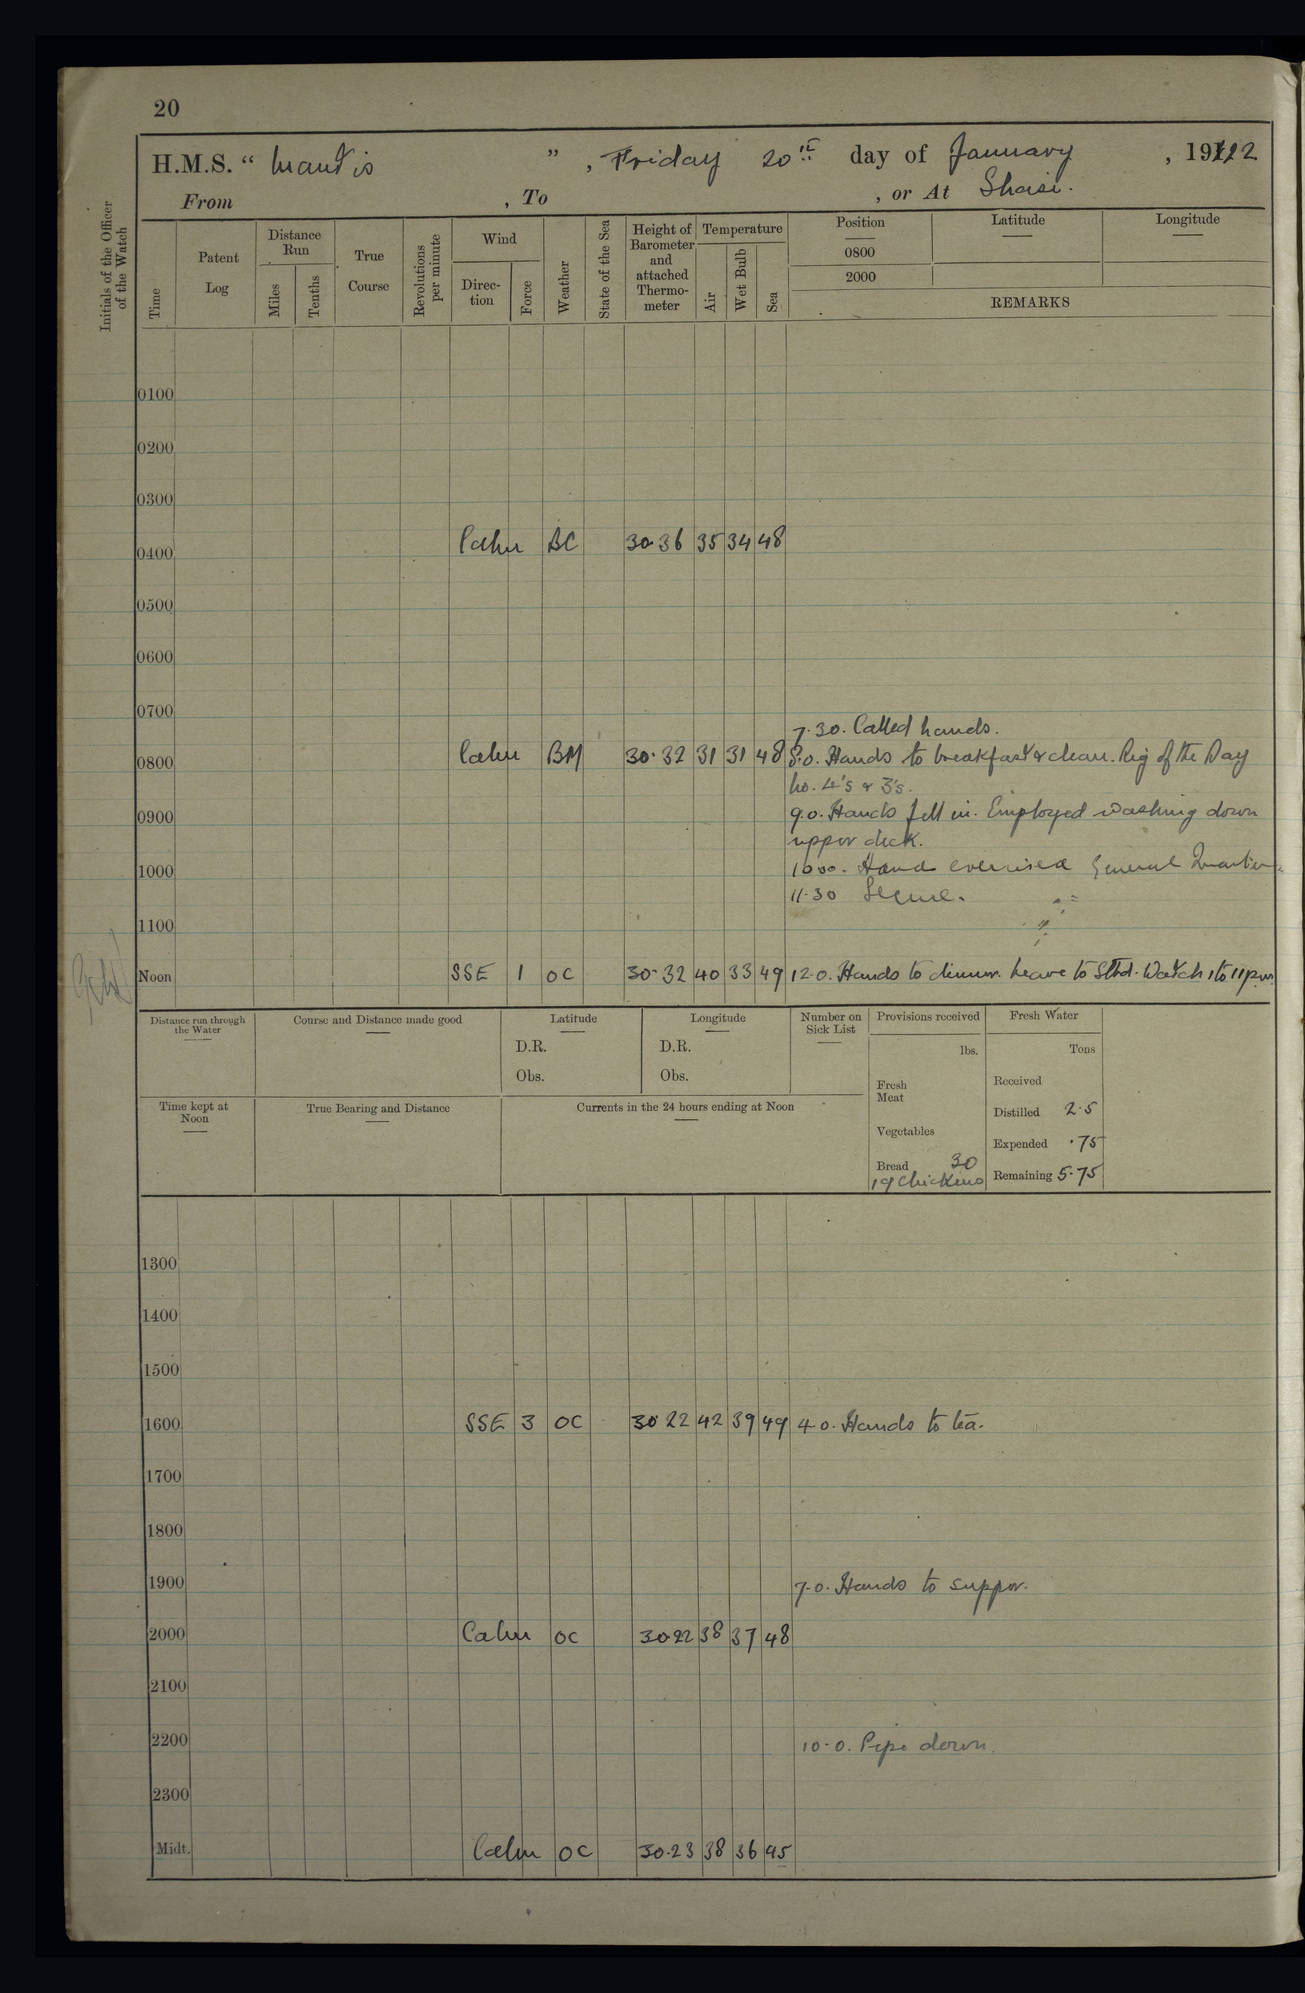 20
H.M.S. “ Mantis ”, Friday 20th day of January, 1922
From , To , or At Shasi.
Initials of the Officer of the Watch
Time
Patent Log
Distance Run
Miles
Tenths
True Course
Revolutions per minute
Wind
Direction
Force
Weather
State of the Sea
Height of Barometer and attached Thermometer
Temperature
Air
Wet Bulb
Sea
Position
0800
2000
Latitude
Longitude
REMARKS
0100
0200
0300
0400 Calm BC 30.36 35 34 48
0500
0600
0700
7.30. Called hands.
0800 Calm BM 30.32 31 31 48 8.0. Hands to breakfast & clean. Rig of the Day
No. 4's & 3's.
0900 9.0. Hands fell in. Employed washing down
upper deck.
1000 10.00. Hand exercised General Quarters
11.30 Secure.
1100
Noon SSE 1 OC 30.32 40 33 49 12.0. Hands to dinner. Leave to Stbd. Watch 1 to 11 p.m.
Distance run through the Water
Course and Distance made good
Latitude
D.R.
Obs.
Longitude
D.R.
Obs.
Number on Sick List
Provisions received
lbs.
Fresh Meat
Vegetables
Bread 30
19 Chickens
Fresh Water
Tons
Received
Distilled 2.5
Expended .75
Remaining 5.75
Time kept at Noon
True Bearing and Distance
Currents in the 24 hours ending at Noon
1300
1400
1500
1600 SSE 3 OC 30.22 42 39 49 4.0. Hands to tea.
1700
1800
1900 7.0. Hands to supper.
2000 Calm OC 30.22 38 37 48
2100
2200 10.0. Pipe down.
2300
Midt. Calm OC 30.23 38 36 45